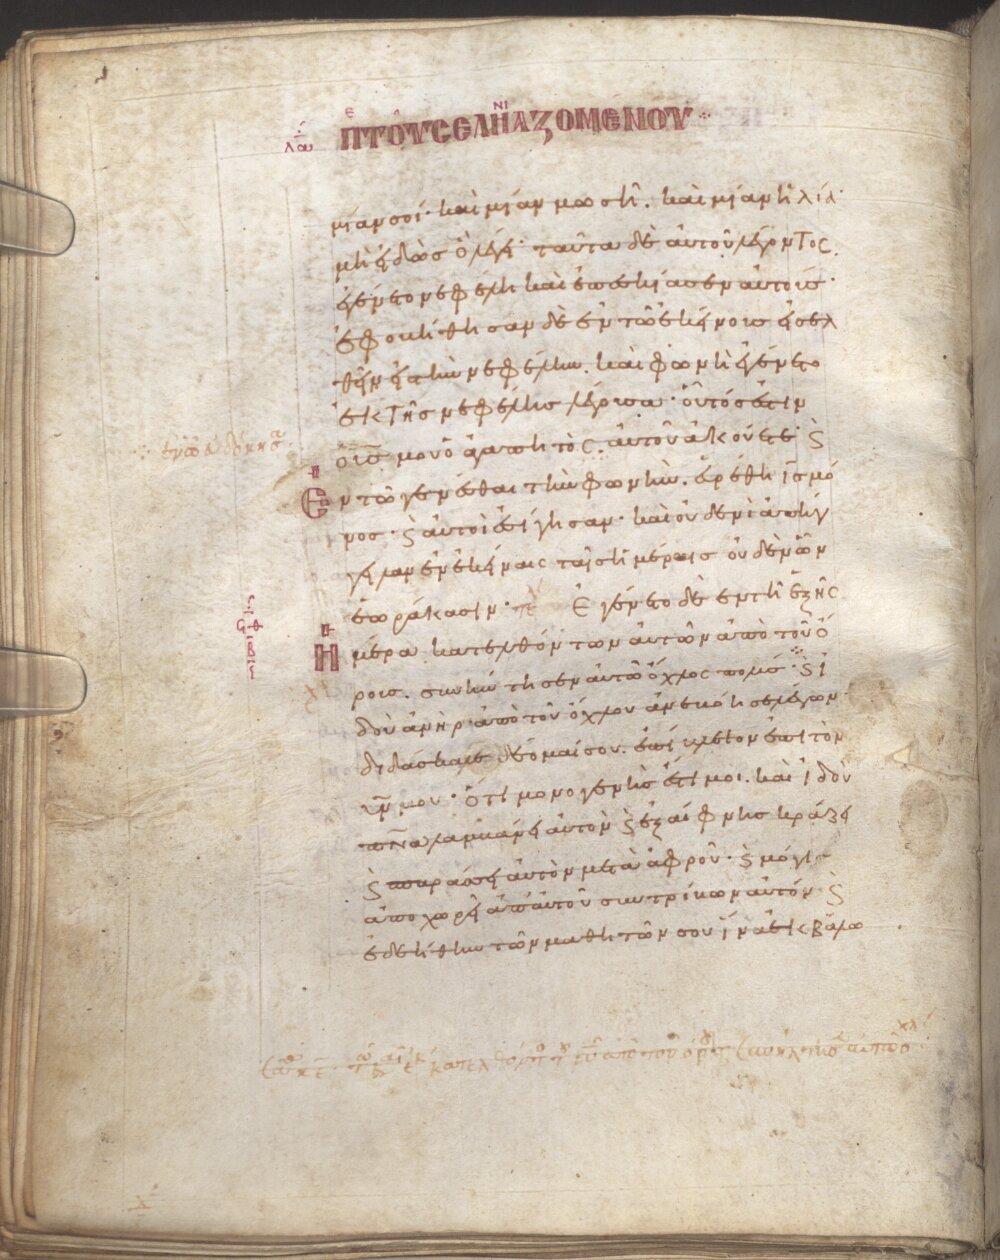 λα ΠΕ ΤΟΥ CΕΛΗΝΙΑΖΟΜΕΝΟΥ
μίαν σοί· καὶ μίαν μωσῆ. καὶ μίαν ἡλία·
μὴ εἰδὼς ὃ λέγει· ταῦτα δὲ αὐτοῦ λέγοντος.
ἐγένετο νεφέλη καὶ ἐπεσκίασεν αὐτοις·
ἐφοβήθησαν δὲ ἐν τῶ ἐκείνοις εἰσελ
θεῖν εἰς τὴν νεφέλην. καὶ φωνὴ ἐγένετο
ἐκ τῆς νεφέλης λέγουσα· οὗτός ἐστιν
ὁ υἱς μου ὁ ἀγαπητὸς. αὐτοῦ ἀκούετε· ϗ
Εν τῶ γενέσθαι τὴν φωνὴν. εὑρέθη ἰς μό
νος· ϗ αὐτοὶ ἐσίγησαν· καὶ οὐδενὶ ἀπήγ
γειλαν ἐν ἐκείναις ταῖς ἡμέραις οὐδὲν ὧν
ἑωράκασιν· Εγένετο δὲ ἐν τῆ ἑξῆς
Ημέρα κατελθόντων αὐτῶν ἀπὸ τοῦ ὄ
ρους. συνήντησεν αὐτῶ ὄχλος πολύς· ϗ ἰ
δοὺ ἀνὴρ ἀπὸ τοῦ ὄχλου ἀνεβόησε λέγων·
διδάσκαλε δέομαί σου. ἐπίβλεψον ἐπὶ τὸν
υν μου· ὅτι μονογενής ἐστί μοι. καὶ ἰδοὺ
πνα λαμβάνει αὐτὸν ϗ ἐξαίφνης κράζει
ϗ σπαράσσει αὐτὸν μετὰ ἀφροῦ· ϗ μόγις
ἀποχωρεῖ ἀπ' αὐτοῦ συντρίβων αὐτόν· ϗ
ἐδεήθην τῶν μαθητῶν σου ἵνα ἐκβάλω